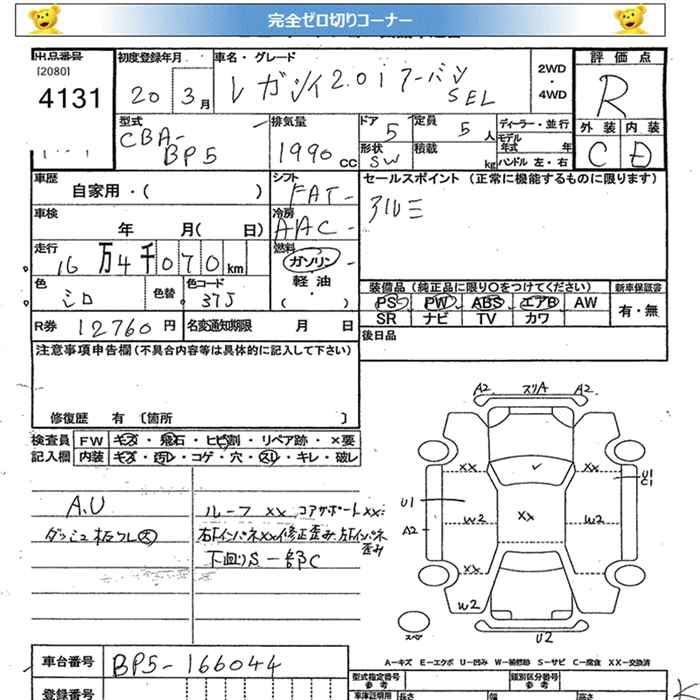 完全ゼロ切りコーナー
出品番号
[2080]
4131
初度登録年月
20 3月
車名・グレード
レガシィ 2.0i アーバン
SEL
2WD
・
4WD
評価点
R
外装 内装
C D
型式
CBA-
BP5
排気量
1990 CC
ドア 5
定員 5 人
形状 SW
積載 kg
ディーラー・並行
モデル年式 年
ハンドル 左・右
車歴
自家用・( )
シフト
FAT-
車検
年 月( 日)
冷房
AAC-
走行
16万4千070km
燃料
ガソリン
・
軽油
・
( )
セールスポイント(正常に機能するものに限ります)
アルミ
色
シロ
色替
色コード
37J
装備品(純正品に限り○をつけてください)
新車保証書
PS PW ABS エアB AW
SR ナビ TV カワ
有・無
R券 12760円
名変通知期限 月 日
後日品
注意事項申告欄(不具合内容等は具体的に記入して下さい)
修復歴 有 〔箇所 〕
検査員
記入欄
FW キズ・飛石・ヒビ割・リペア跡・×要
内装 キズ・汚レ・コゲ・穴・スレ・キレ・破レ
A.U
ダッシュ板ワレ大
ルーフ XX コアサポートXX:
右Fインパネ XX修正歪み.左Fインパネ
歪み
下回りS 一部C
A2 スリA A2
XX XX
U1
C1
U1
W2 XX W2
A2
XX
W2
スペア
U2
A-キズ E-エクボ U-凹み W-補修跡 S-サビ C-腐食 XX-交換済
車台番号 BP5-166044
登録番号
型式指定番号
参考
類別区分番号
参考
車庫証明用
長さ 幅 高さ